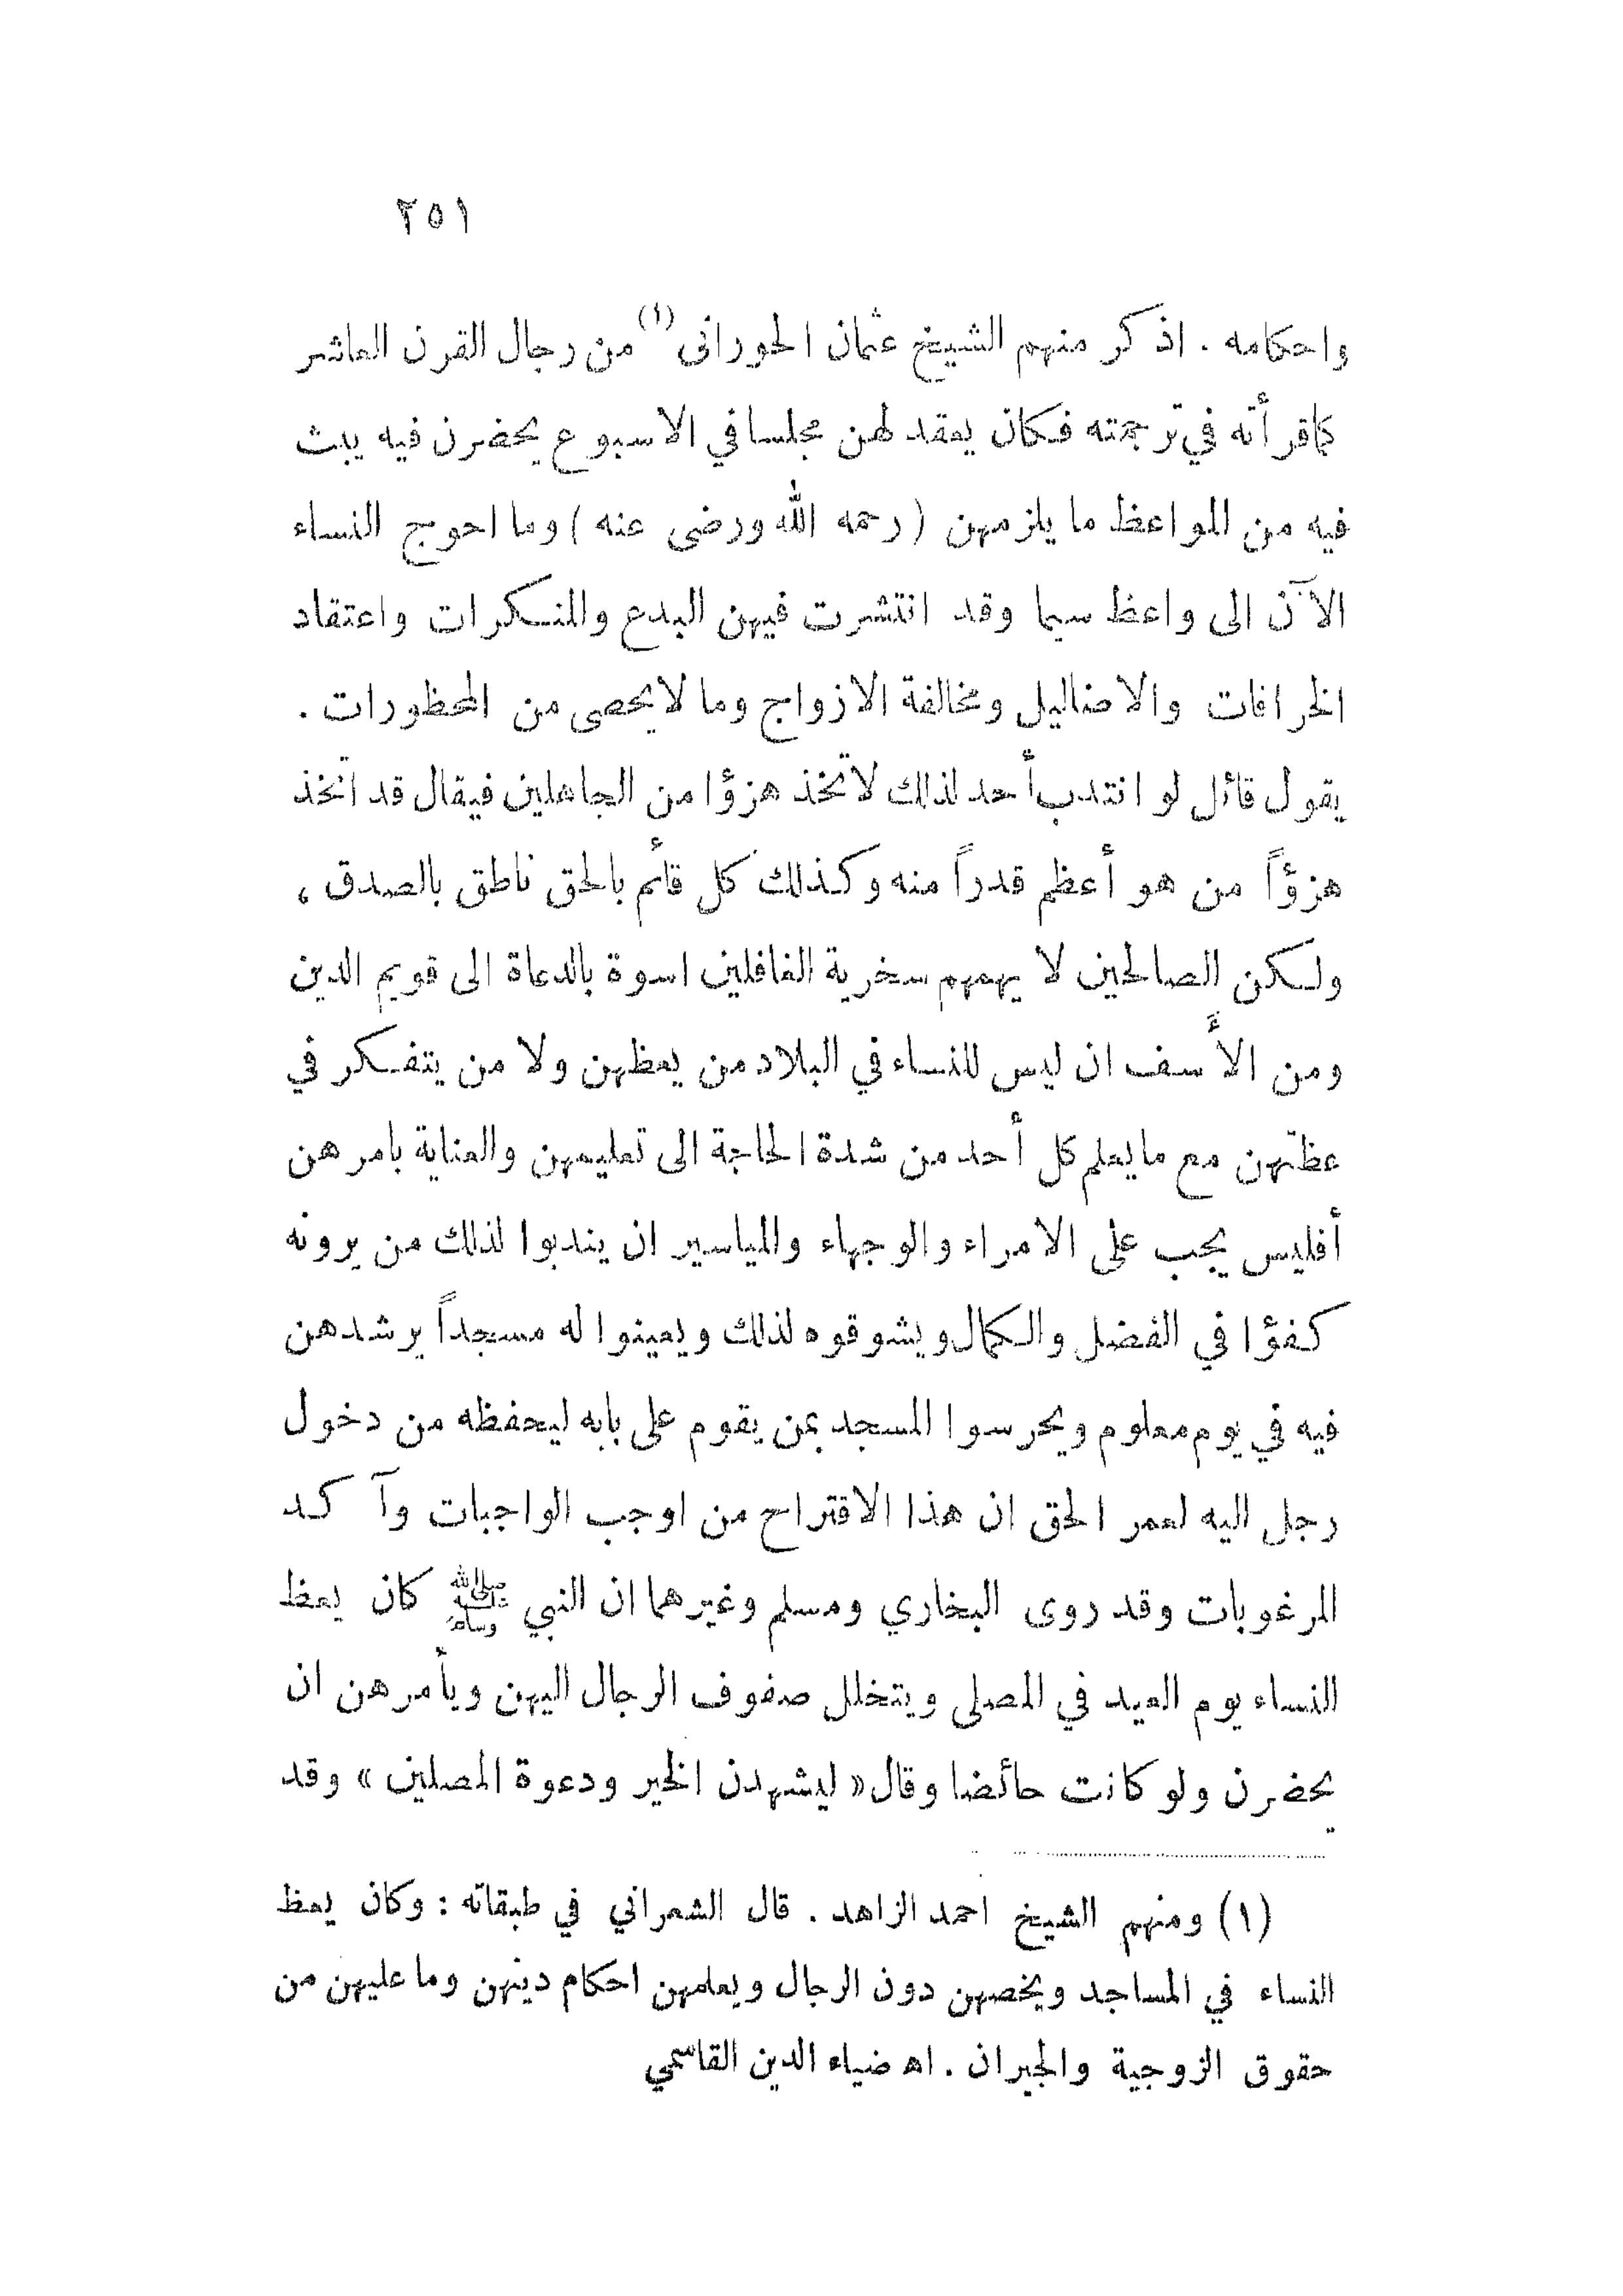 ٢٥١
واحكامه . اذكر منهم الشيخ عثمان الحورانى (١) من رجال القرن العاشر
كما قرأته في ترجمته فكان يعقد لهن مجلسا في الاسبوع يحضرن فيه يبث
فيه من المواعظ ما يلزمهن ( رحمه الله ورضى عنه ) وما احوج النساء
الآن الى واعظ سيما وقد انتشرت فيهن البدع والمنكرات واعتقاد
الخرافات والاضاليل ومخالفة الازواج وما لا يحصى من المحظورات .
يقول قائل لو انتدب أحد لذلك لاتُّخذ هزؤا من الجاهلين فيقال قد اتُّخذ
هزؤاً من هو أعظم قدراً منه وكذلك كل قائم بالحق ناطق بالصدق ،
ولكن الصالحين لا يهمهم سخرية الغافلين اسوة بالدعاة الى قويم الدين
ومن الأَسف ان ليس للنساء في البلاد من يعظهن ولا من يتفكر في
عظتهن مع ما يعلم كل أحد من شدة الحاجة الى تعليمهن والعناية بامرهن
أفليس يجب على الامراء والوجهاء والمياسير ان يندبوا لذلك من يرونه
كفؤا في الفضل والكمال ويشوقوه لذلك ويعينوا له مسجداً يرشدهن
فيه في يوم معلوم ويحرسوا المسجد بمن يقوم على بابه ليحفظه من دخول
رجل اليه لعمر الحق ان هذا الاقتراح من اوجب الواجبات وآكد
المرغوبات وقد روى البخاري ومسلم وغيرهما ان النبي ﷺ كان يعظ
النساء يوم العيد في المصلى ويتخلل صفوف الرجال اليهن ويأمرهن ان
يحضرن ولو كانت حائضا وقال « ليشهدن الخير ودعوة المصلين » وقد
(١) ومنهم الشيخ احمد الزاهد . قال الشعراني في طبقاته : وكان يعظ
النساء في المساجد ويخصهن دون الرجال ويعلمهن احكام دينهن وما عليهن من
حقوق الزوجية والجيران . اه ضياء الدين القاسمي